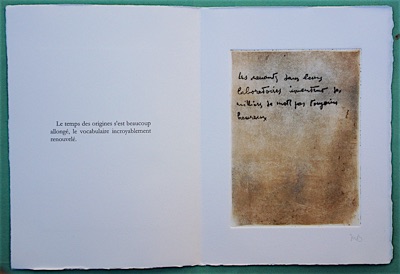 Le temps des origines s'est beaucoup
allongé, le vocabulaire incroyablement
renouvelé.
Les savants dans leurs
laboratoires inventent par
milliers de mots pas toujours
heureux